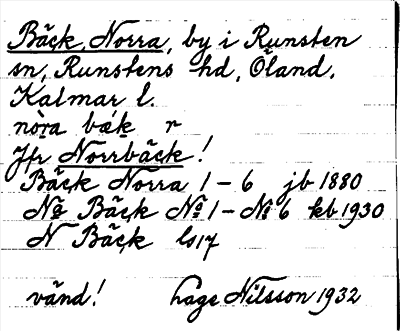 Bäck, Norra, by i Runsten
sn, Runstens hd, Öland,
Kalmar l.
nòra bǽk r
Jfr Norrbäck!
Bäck Norra 1-6 jb 1880
Nª Bäck Nº 1 - Nº 6 kb 1930
N Bäck ls 17
vänd! Lage Nilsson 1932